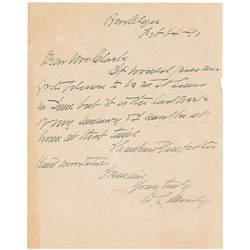 Brooklyn
Dear Mr Clark
It would give me
great pleasure to be
in June but it is the last week
of my Seminary & I must be at
home at that time
Thanking you for the
kind invitation
I remain
Yours truly
D. L. Moody